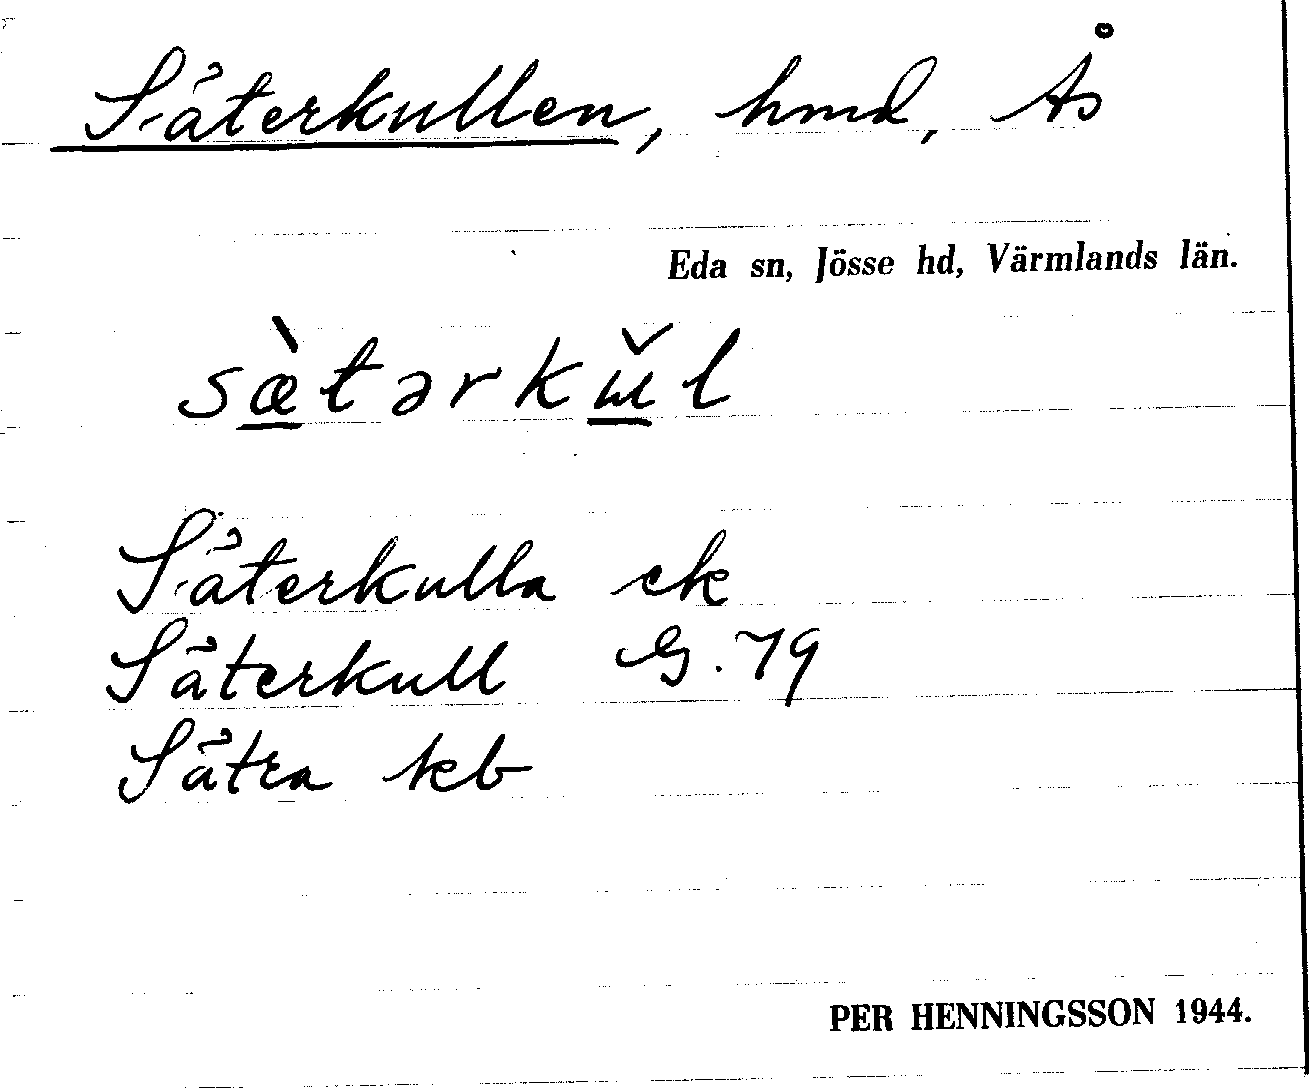 Säterkullen, hmd, Ås
Eda sn, Jösse hd, Värmlands län.
sæ̱̀tərkṵ̌l
Säterkulla ek
Säterkull G. 79
Sätra kb
PER HENNINGSSON 1944.